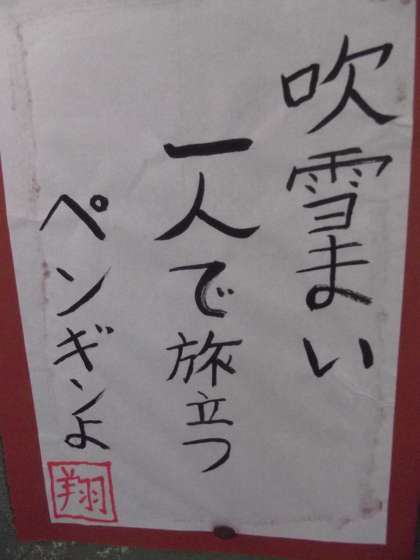 吹雪まい
一人で旅立つ
ペンギンよ
翔